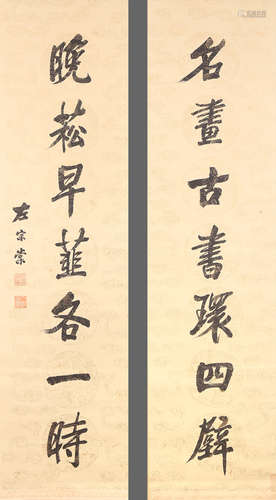 名畫古書環四壁
晚菘早韭各一時
左宗棠